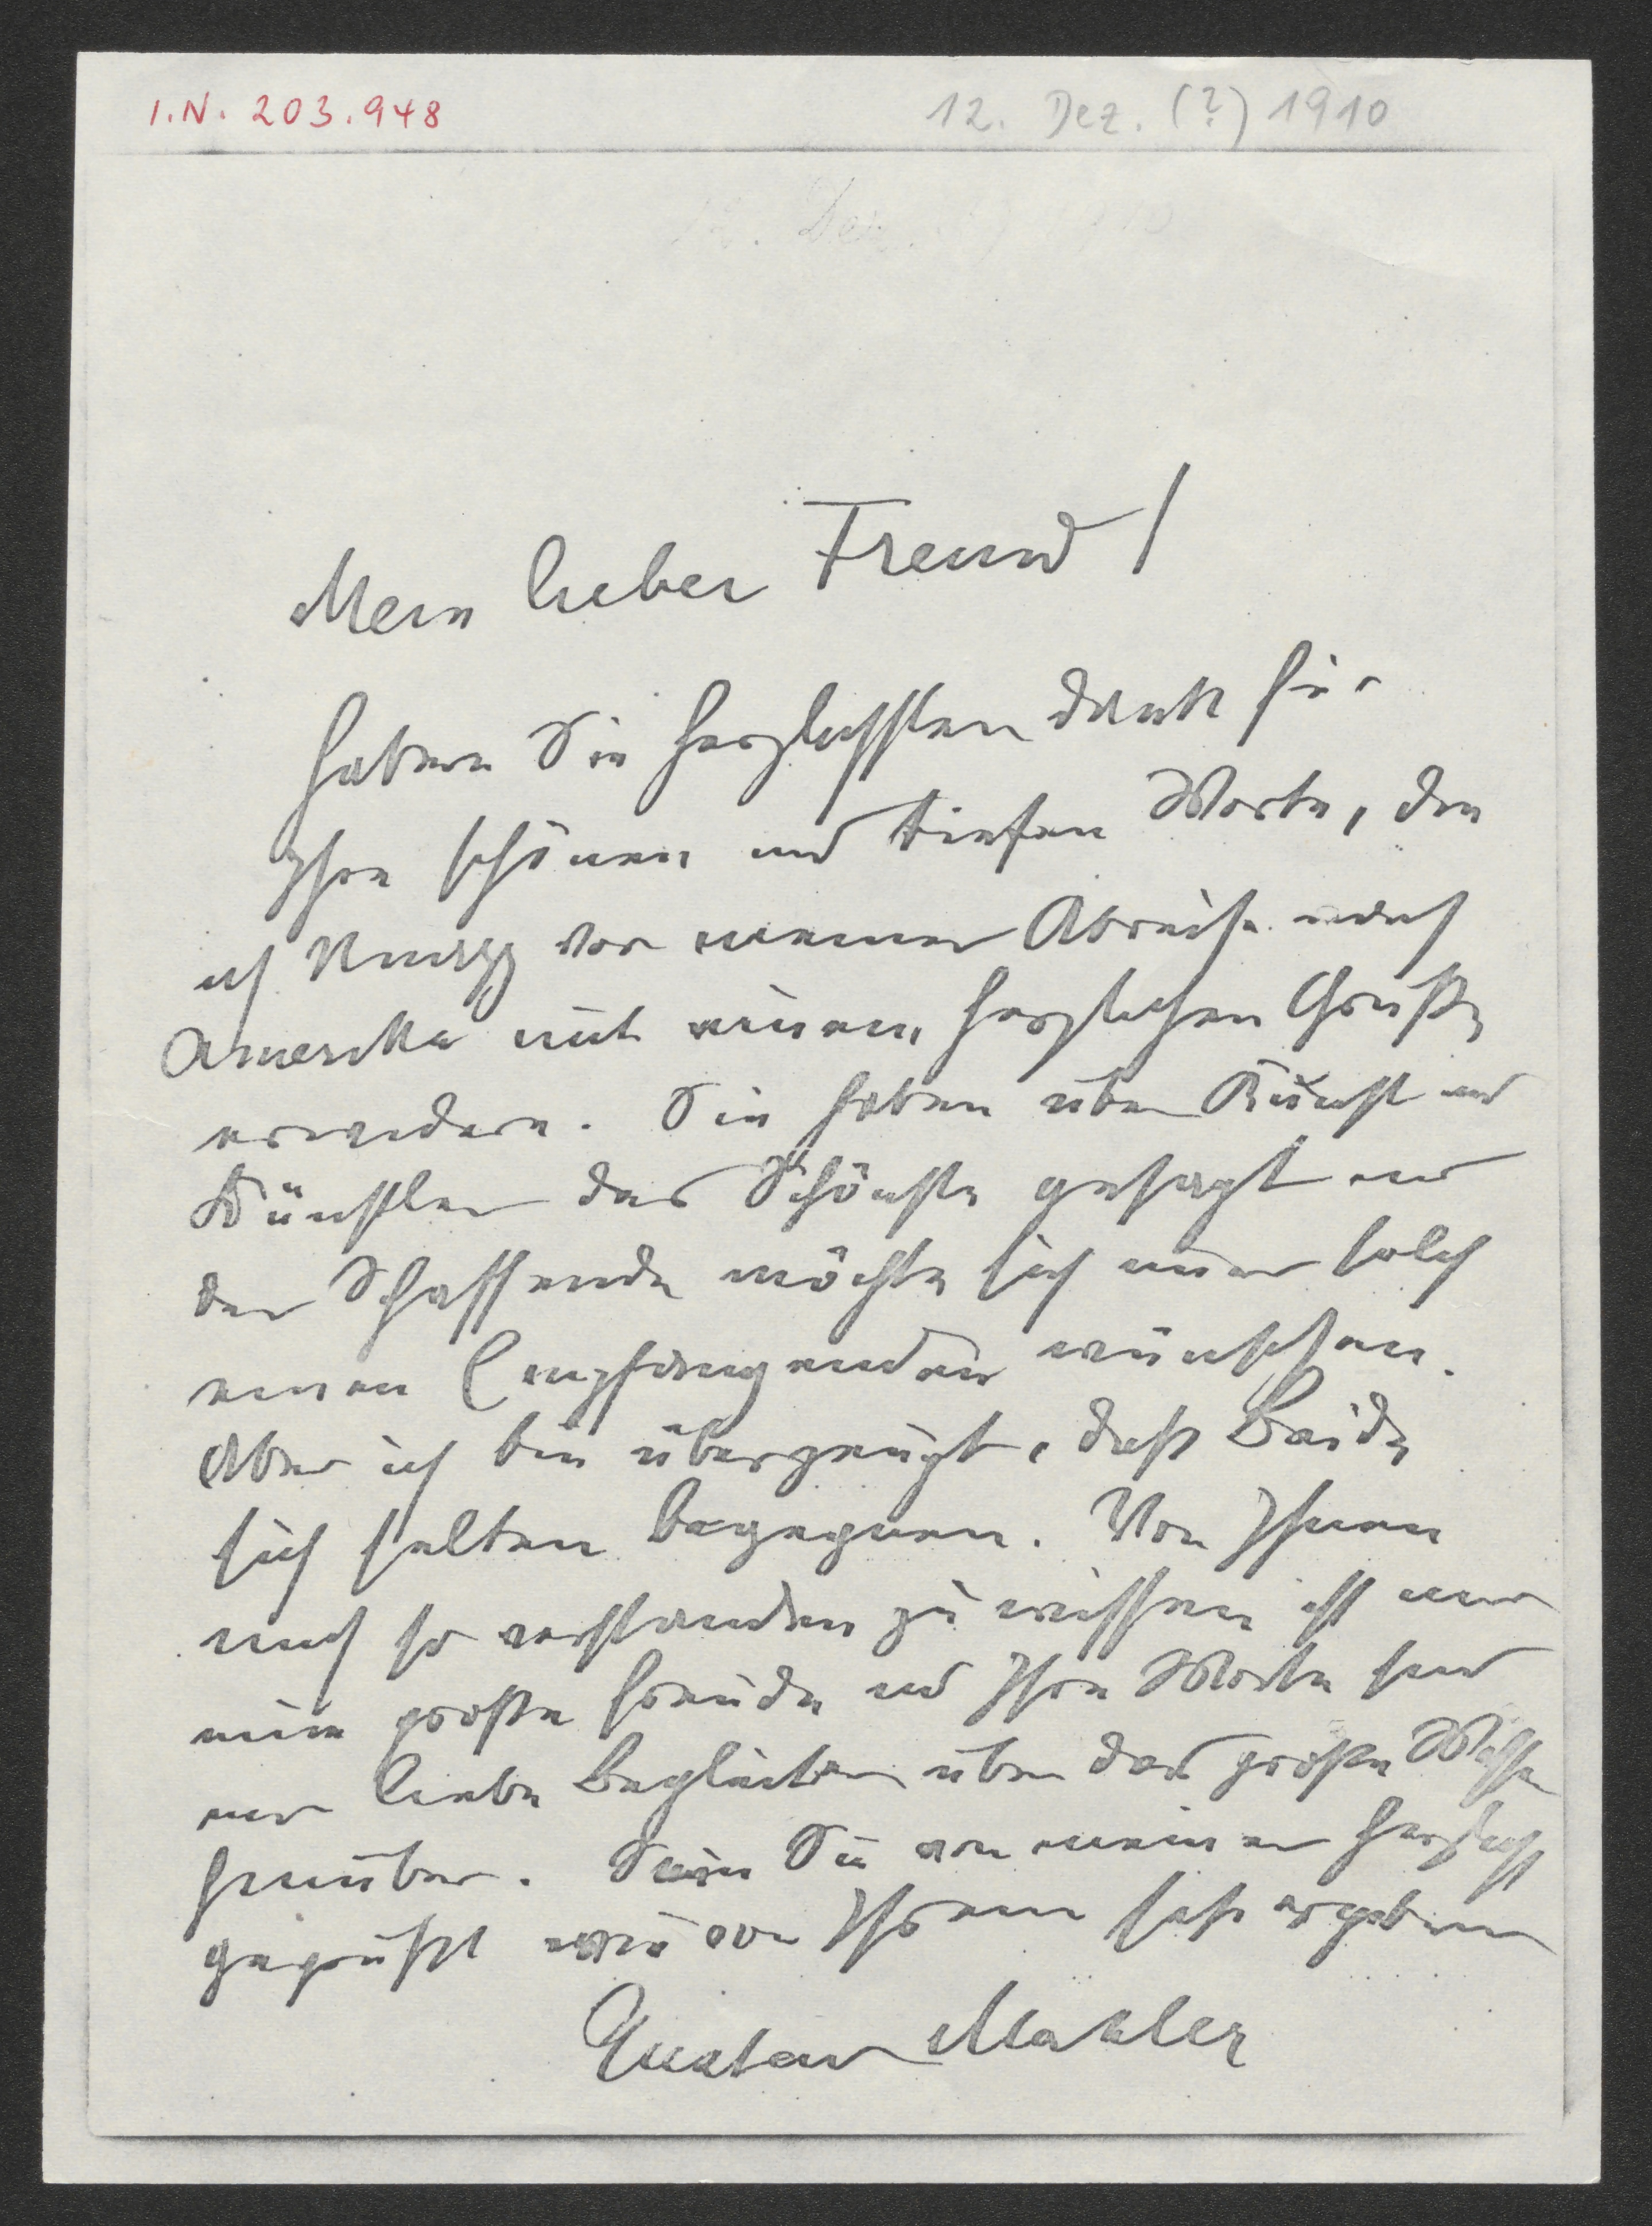 I.N. 203.948
12. Dez. (?) 1910
12. Dez. (?) 1910
Mein lieber Freund!
Haben Sie herzlichsten Dank für
Ihre schönen und tiefen Worte, die
ich knapp vor meiner Abreise nach
Amerika mit einem herzlichen Gruße
erwidere. Sie haben über Kunst und
Künstler das Schönste gesagt und
der Schaffende möchte sich immer solch
einen Empfangenden wünschen.
Aber ich bin überzeugt, daß Beide
sich selten begegnen. Von Ihnen
mich so verstanden zu wissen ist mir
eine große Freude und Ihre Worte sind
mir liebe Begleiter über das große Wasser
hinüber. Seien Sie von meiner herzlichst
gegrüßt wie von Ihrem sehr ergebenen
Gustav Mahler